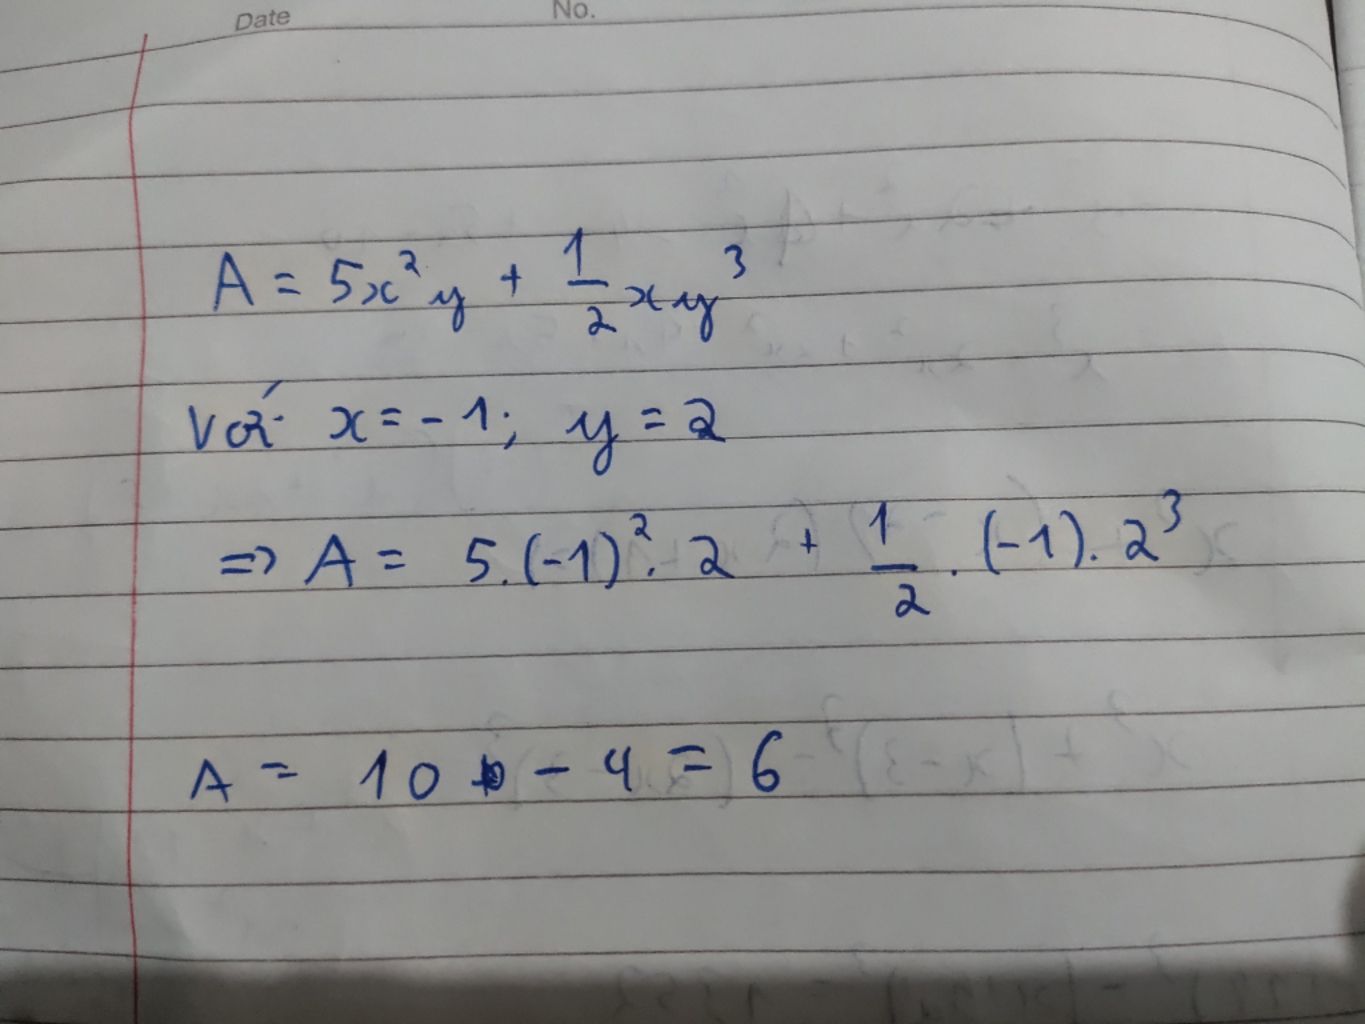 Date No.
A = 5x²y + 1/2 xy³
Với x = -1; y = 2
=> A = 5.(-1)².2 + 1/2 . (-1). 2³
A = 10 - 4 = 6